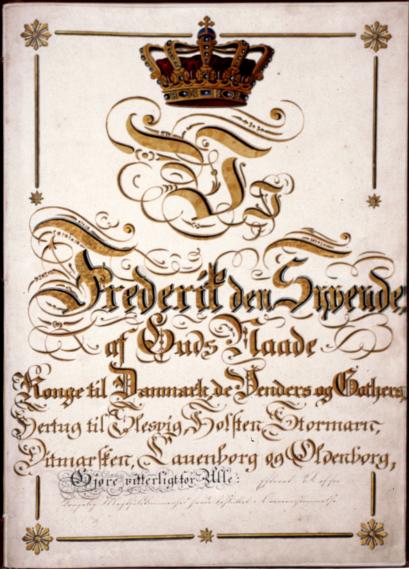 Frederik den Syvende
af Guds Naade
Konge til Danmark, de Venders og Gothers,
Hertug til Slesvig, Holsten, Stormarn,
Ditmarsken, Lauenborg og Oldenborg,
Gjøre vitterligt for Alle: